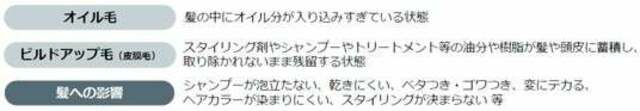 オイル毛
髪の中にオイル分が入り込みすぎている状態
ビルドアップ毛（皮膜毛）
スタイリング剤やシャンプーやトリートメント等の油分や樹脂が髪や頭皮に蓄積し、
取り除かれないまま残留する状態
髪への影響
シャンプーが泡立たない、乾きにくい、ベタつき・ゴワつき、変にテカる、
ヘアカラーが染まりにくい、スタイリングが決まらない 等